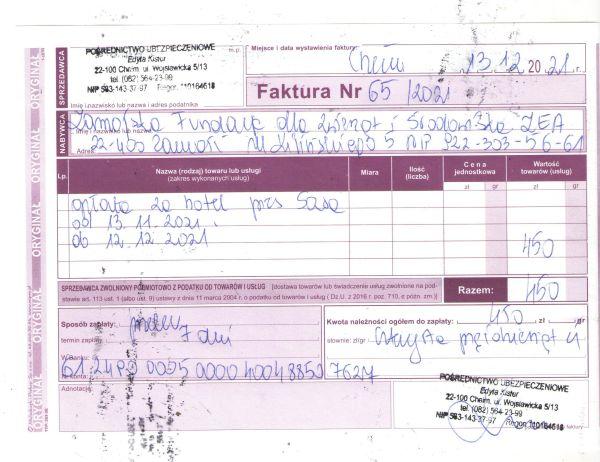 POŚREDNICTWO UBEZPIECZENIOWE
Edyta Kister
22-100 Chełm, ul. Wojsławicka 5/13
tel. (082) 564-23-99
NIP 563-143-37-97 Regon: 110164618
m.p.
SPRZEDAWCA
Imię i nazwisko lub nazwa i adres podatnika
Miejsce i data wystawienia faktury:
Chełm 13.12 2021 r.
Faktura Nr 65/2021
ORYGINAŁ ORYGINAŁ ORYGINAŁ ORYGINAŁ ORYGINAŁ
NABYWCA
Zamojska Fundacja dla Zwierząt i Środowiska ZEA
Imię i nazwisko lub nazwa:
22-400 Zamość NIP 922-303-56-61
Adres:
Lp.
Nazwa (rodzaj) towaru lub usługi
(zakres wykonanych usług)
Miara
Ilość
(liczba)
Cena
jednostkowa
zł gr
Wartość
towarów (usług)
zł gr
opłata za hotel pies Saba
od 13.11.2021
do 12.12.2021
450
SPRZEDAWCA ZWOLNIONY PODMIOTOWO Z PODATKU OD TOWARÓW I USŁUG [dostawa towarów lub świadczenie usług zwolnione na pod-
stawie art. 113 ust. 1 (albo ust. 9) ustawy z dnia 11 marca 2004 r. o podatku od towarów i usług ( Dz.U. z 2016 r. poz. 710, z późn. zm.)]
Razem:
450
Sposób zapłaty: przelew
termin zapłaty 7 dni
W Banku:
Nr konta:
Kwota należności ogółem do zapłaty:
450
zł/gr
słownie: zł/gr czterysta pięćdziesiąt zł
Adnotacje:
POŚREDNICTWO UBEZPIECZENIOWE
Edyta Kister
22-100 Chełm, ul. Wojsławicka 5/13
tel. (082) 564-23-99
NIP 563-143-37-97 Regon: 110164618